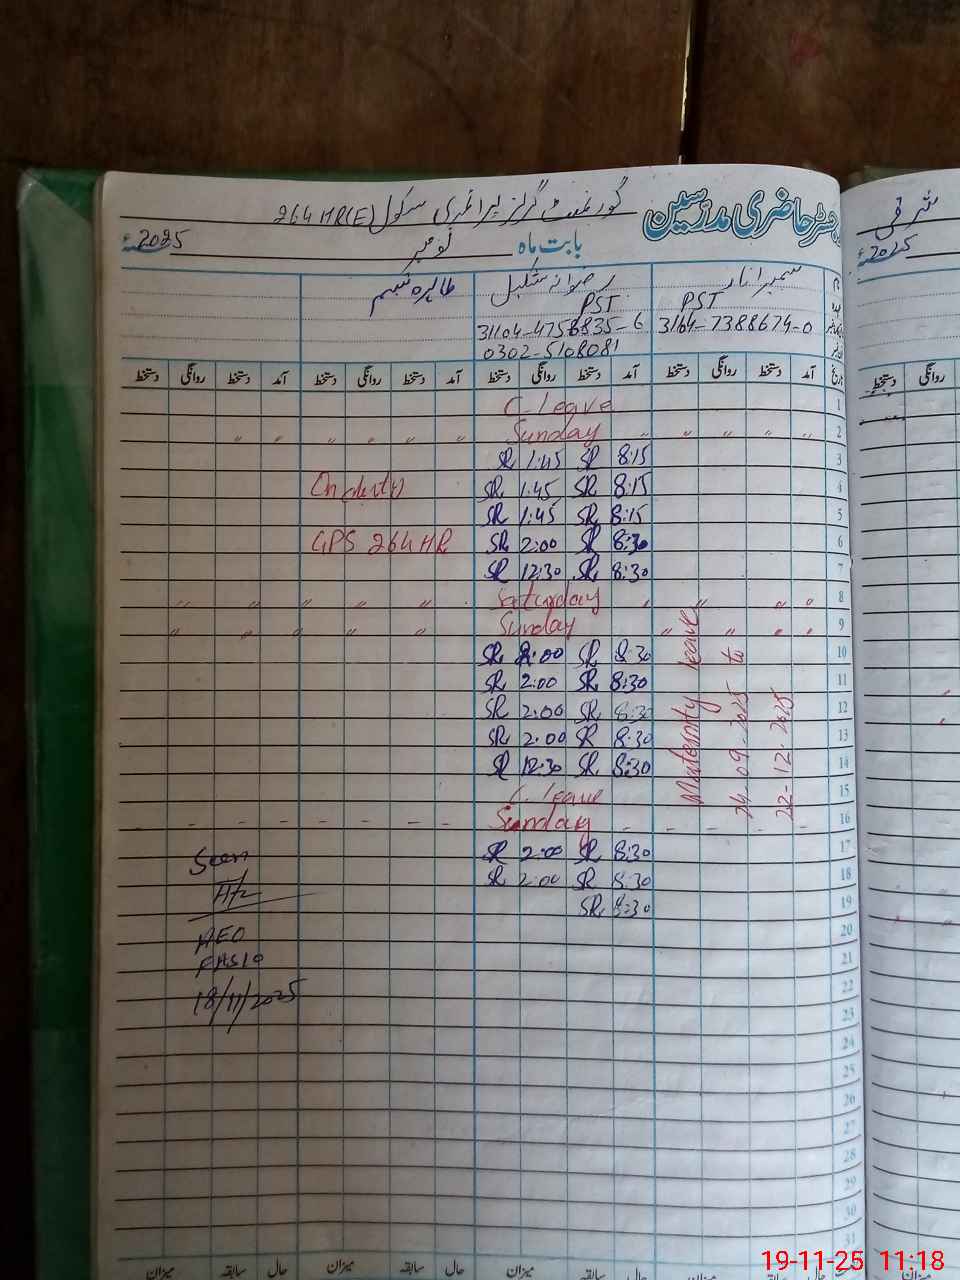 رجسٹر حاضری مدرسین گورنمنٹ گرلز پرائمری سکول 264 HR(E)
بابت ماہ نومبر 2025ء
سمیرا نار رضوانہ شکیل طاہرہ تبسم
PST PST
3164-7388674-0 31104-4756835-6
0302-5108081
تاریخ آمد دستخط روانگی دستخط آمد دستخط روانگی دستخط آمد دستخط روانگی دستخط آمد دستخط روانگی دستخط
1 C. leave
2 " " " " " Sunday " " " " " " "
3 8:15 SR 1:45 SR
4 8:15 SR 1:45 SR On duty
5 8:15 SR 1:45 SR
6 8:30 SR 2:00 SR GPS 264 HR
7 8:30 SR 12:30 SR
8 " " " " Saturday " " " " "
9 " " " " Sunday " " " " "
10 8:30 SR 2:00 SR
11 8:30 SR 2:00 SR
12 8:30 SR 2:00 SR
13 8:30 SR 2:00 SR
14 8:30 SR 12:30 SR
15 C. leave
16 - - - - Sunday - - - - - - - -
17 8:30 SR 2:00 SR
18 8:30 SR 2:00 SR
19 8:30 SR
20
21
22
23
24
25
26
27
28
29
30
31
Maternity leave
24-09-2025 to
22-12-2025
Seen
AEO
18/11/2025
حال سابقہ میزان حال سابقہ میزان حال سابقہ میزان
شرقی
2025ء
روانگی دستخط
میزان
19-11-25 11:18